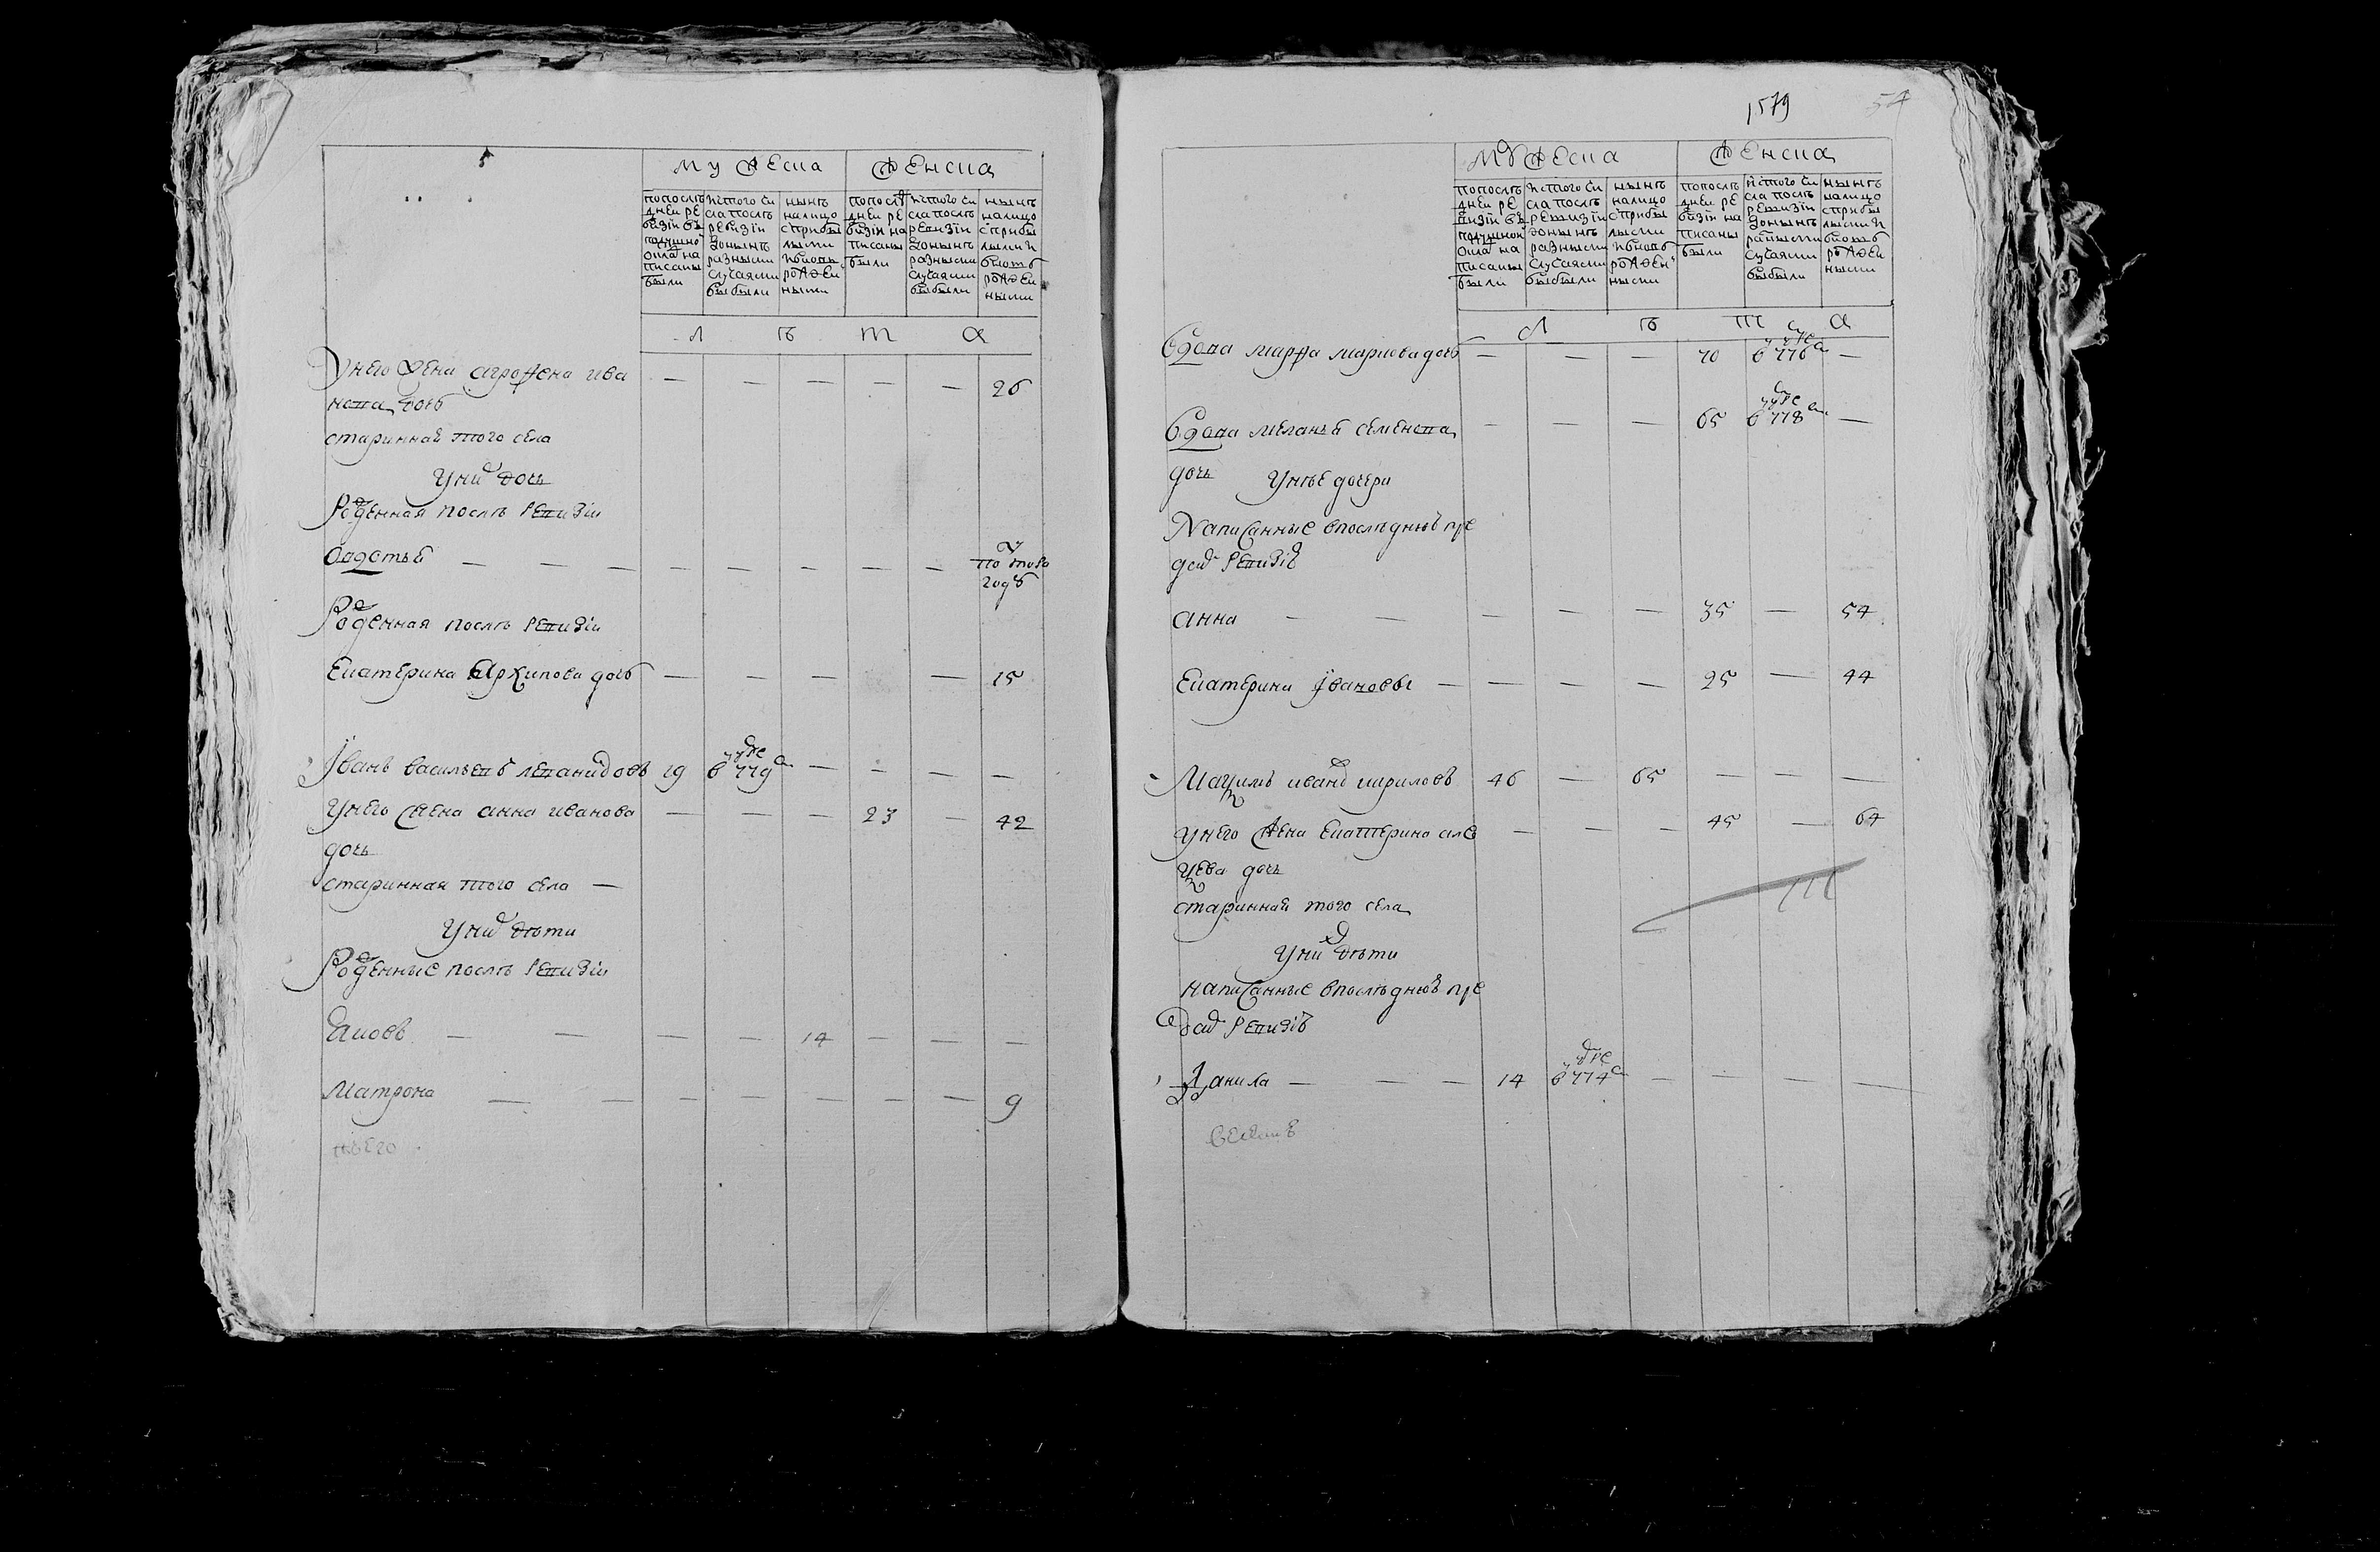 мужеска женска
попослѣ дней ре визiи въ подушной окла на писаны были
исъ того чи сла послѣ ревизiи донынѣ разными случаями выбыли
нынѣ налицо сприбы лыми ивновь рожден ными
попослѣ дней ре визiи на писаны были
исъ того чи сла послѣ ревизiи донынѣ разными случаями выбыли
нынѣ налицо сприбы лыми и вновь рожден ными
л ѣ т а
Унего жена агрофена ива — — — — — 26
нова дочь
стариннай того села
Уних дочь
Рожденная послѣ ревизiи
Овдотья — — — — — — — — по лу году
Рожденная послѣ ревизiи
Екатерина Архипова дочь — — — — 15
Iванъ васильевъ леванидовъ 29 умре в 779 — — — —
Унего жена анна иванова — — — 23 — 42
дочь
старинная того села —
Уних дѣти
Рожденные послѣ ревизiи
Яковъ — — — — 14 — — —
Матрона — — — — — — — 9
1579
54
мужеска женска
попослѣ дней ре визiи въ подушной окла на писаны были
исъ того чи сла послѣ ревизiи донынѣ разными случаями выбыли
нынѣ налицо сприбы лыми ивновь рожден ными
попослѣ дней ре визiи на писаны были
исъ того чи сла послѣ ревизiи донынѣ разными случаями выбыли
нынѣ налицо сприбы лыми и вновь рожден ными
л ѣ т а
Вдова марфа маркова дочь — — — 70 умре в 776 —
Вдова меланья семенова — — — 65 умре в 778 —
дочь Унѣе дочери
Написанные впослѣднюю пре
дсию ревизiю
анна — — — — — 35 — 54
Екатерина Iвановы — — — — 25 — 44
Максимъ иванов кириловъ 46 — 65 — — —
унего жена Екатерина але — — — 45 — 64
ксева дочь
стариннай того села
Уних дѣти
написанные впослѣднюю пре
дсию ревизiю
Данила — — — 14 умре в 774 — — — —